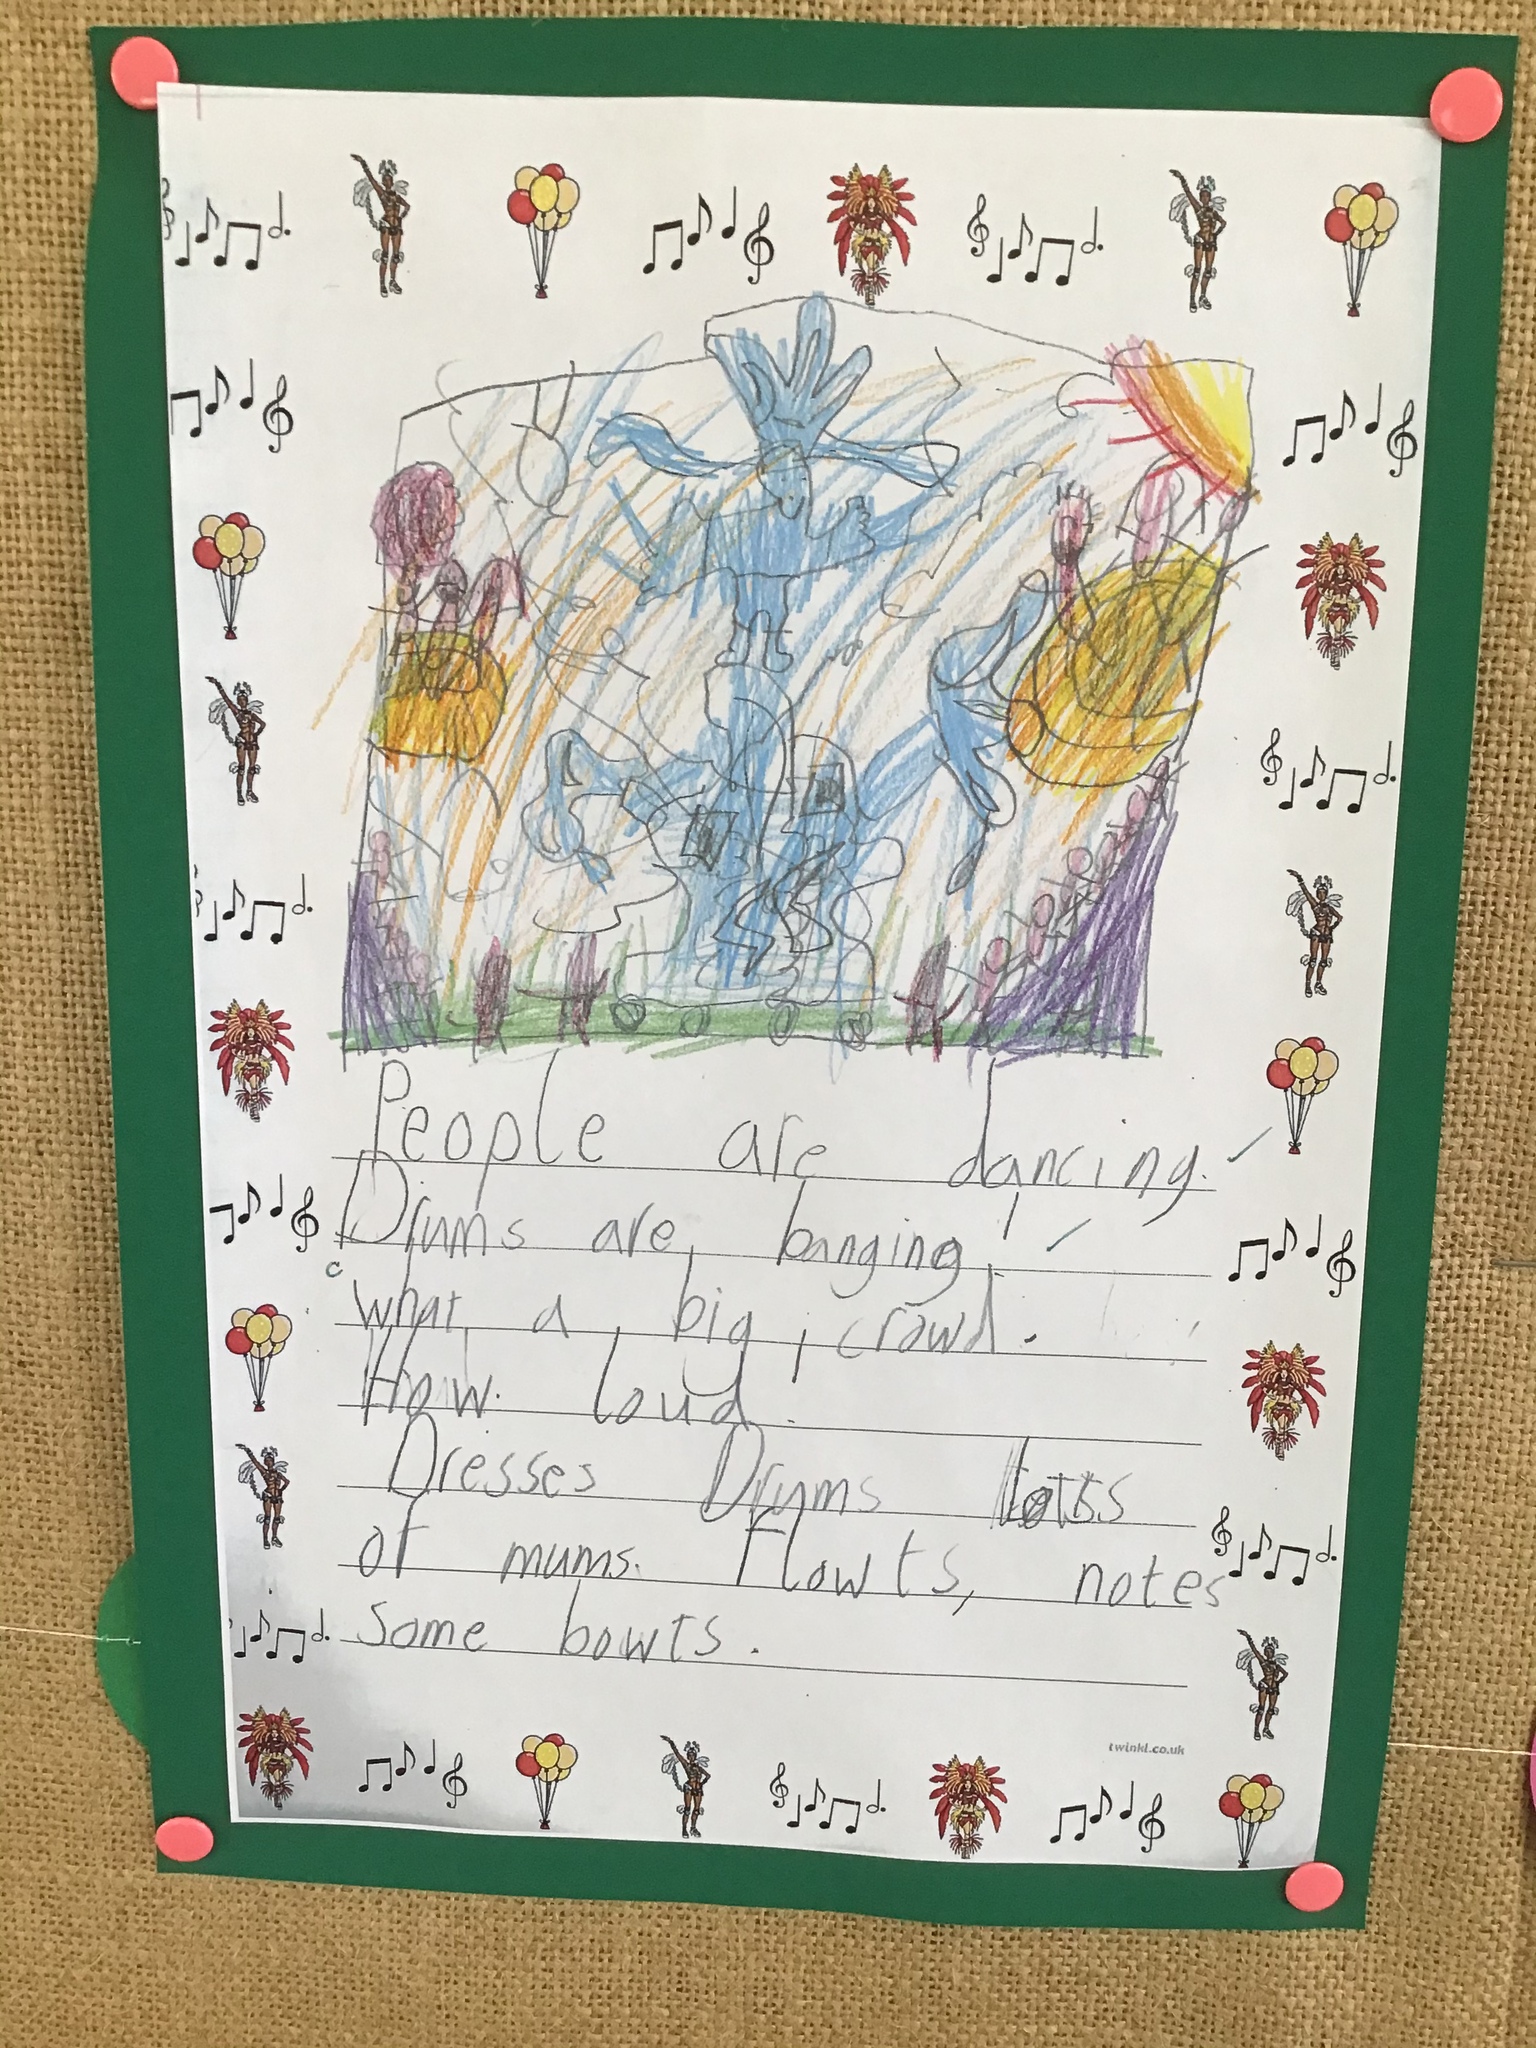 People are dancing.
Drums are banging.
what a big crowd.
How loud.
Dresses Drums lotss
of mums. Flowts, notes
some bowts.
twinkl.co.uk